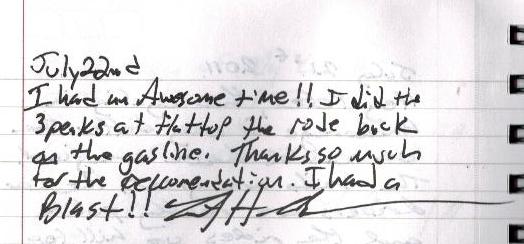 July 22nd
I had an Awesome time!! I did the
3 peaks at flattop the rode back
on the gasline. Thanks so much
for the reccomendation. I had a
Blast!!